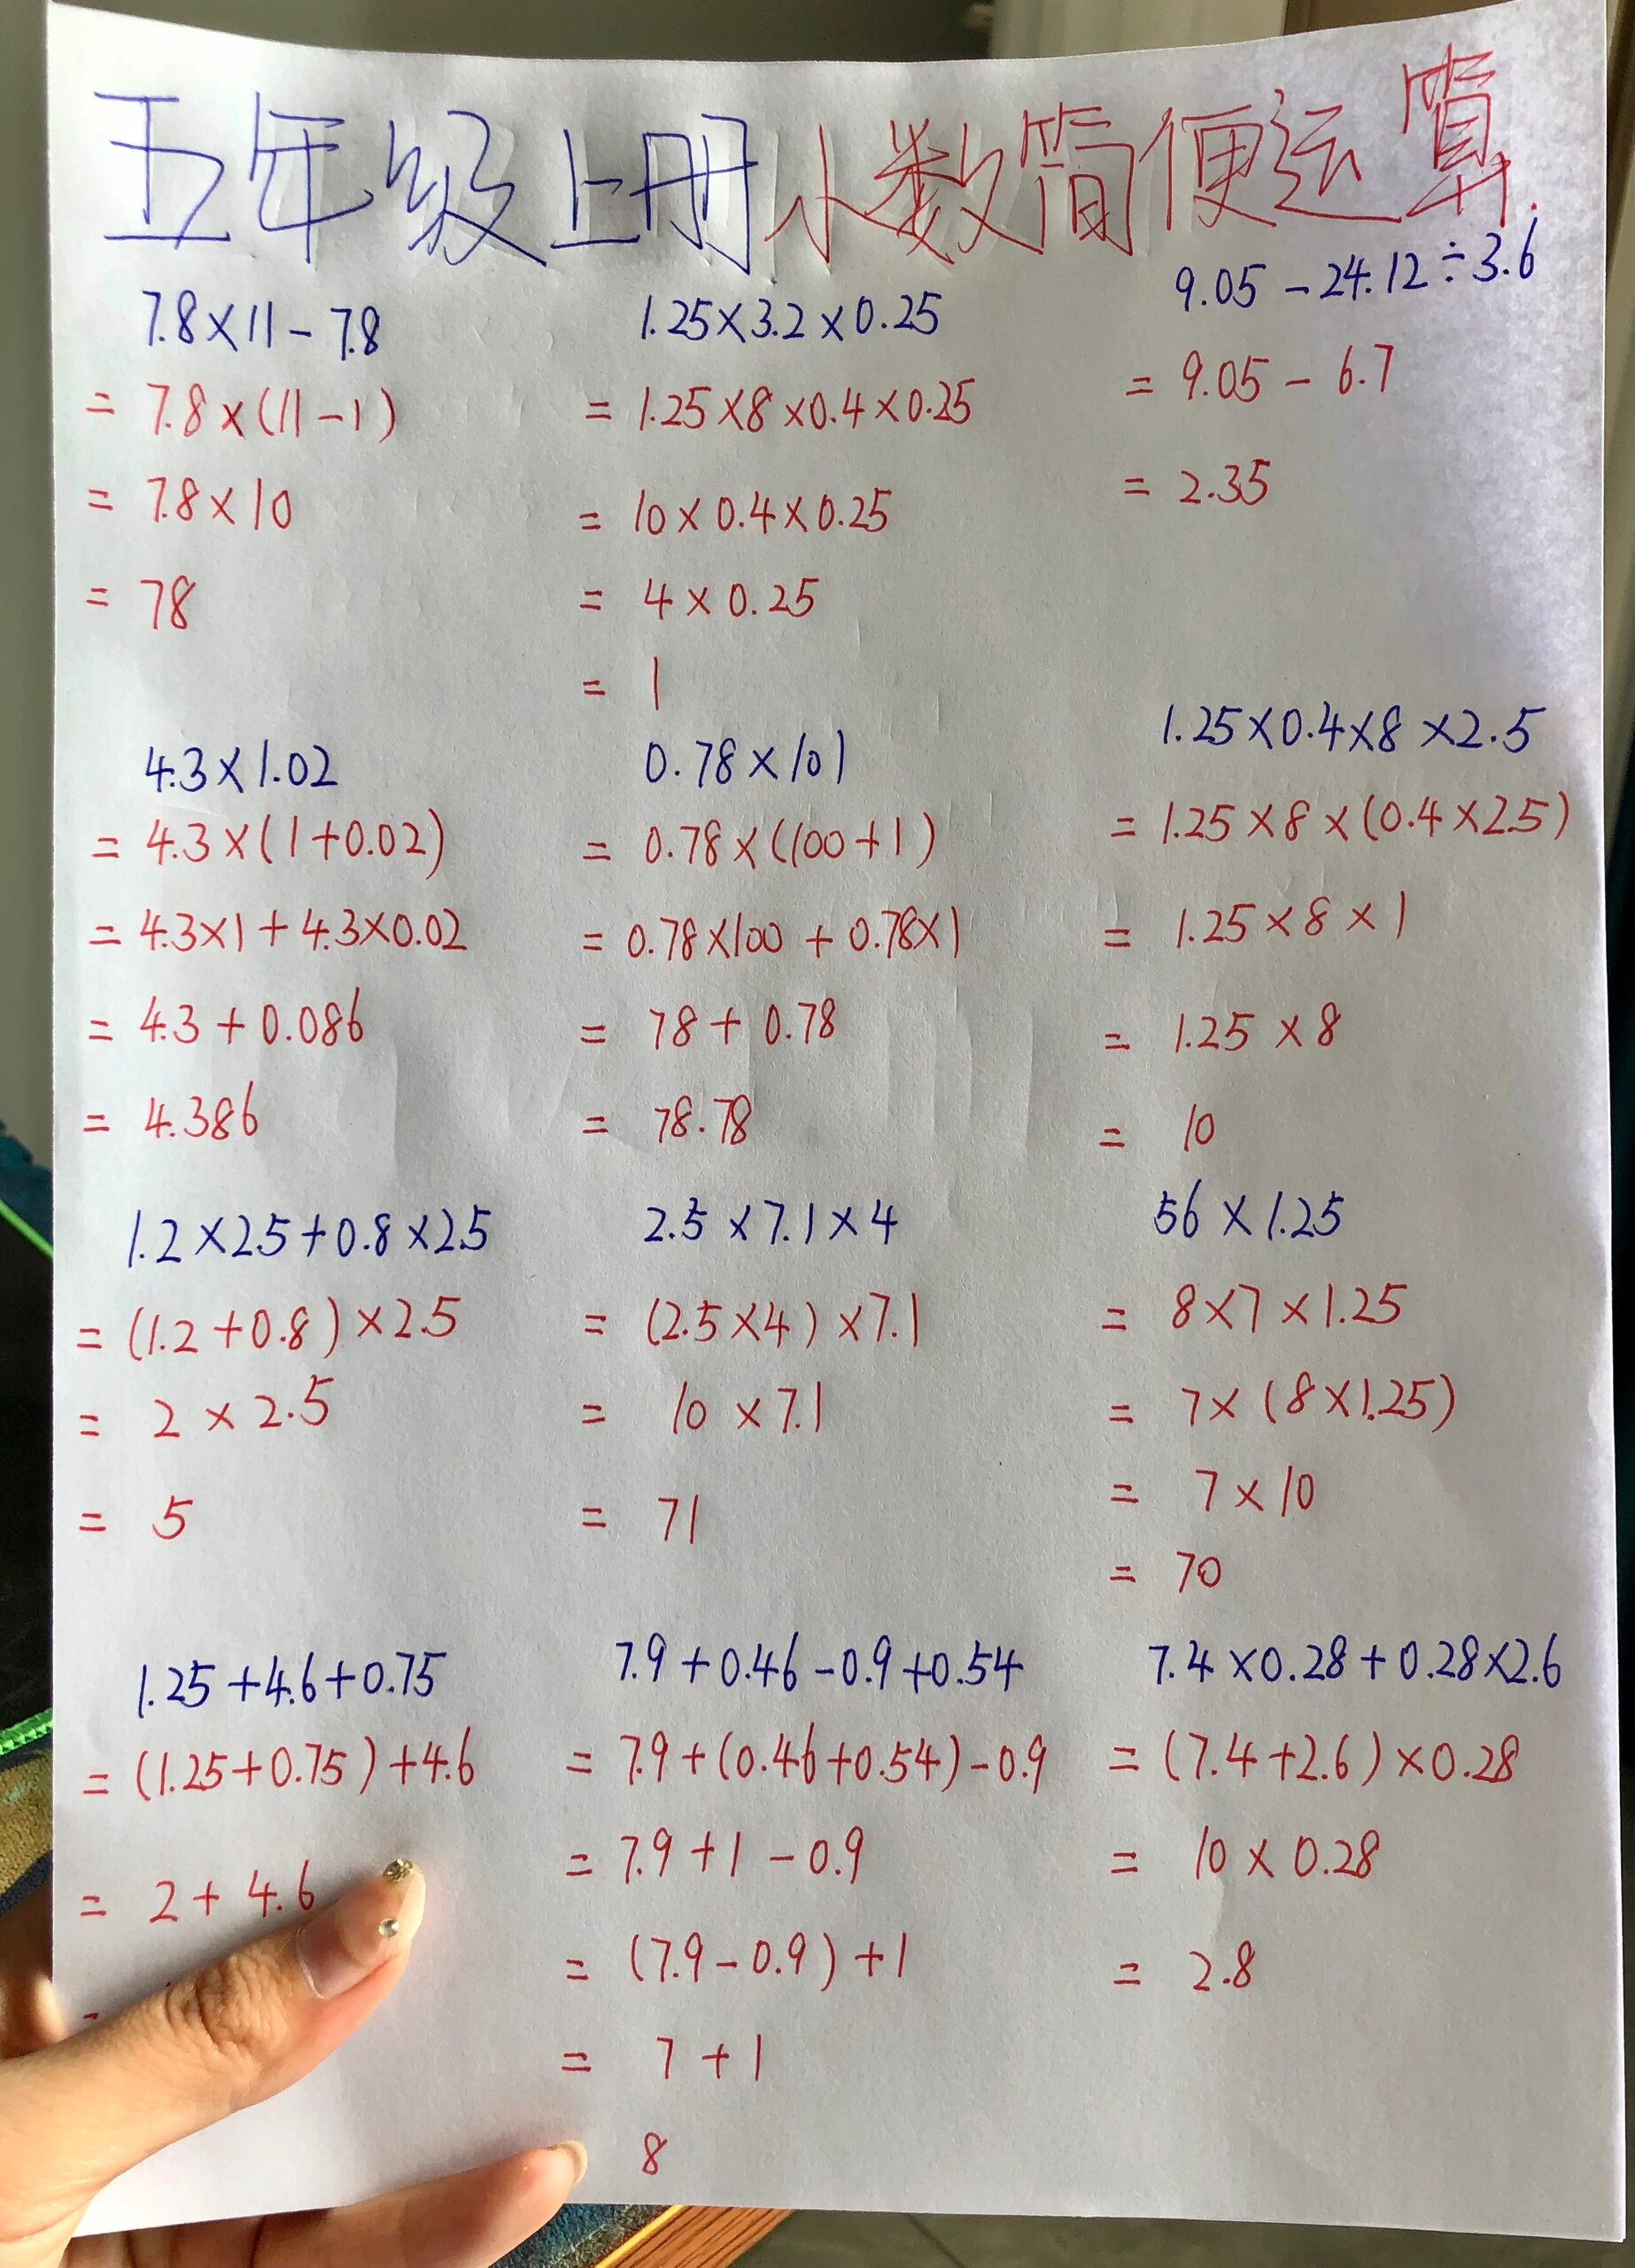 五年级上册小数简便运算.
7.8×11-7.8
=7.8×(11-1)
=7.8×10
=78
1.25×3.2×0.25
=1.25×8×0.4×0.25
=10×0.4×0.25
=4×0.25
=1
9.05-24.12÷3.6
=9.05-6.7
=2.35
4.3×1.02
=4.3×(1+0.02)
=4.3×1+4.3×0.02
=4.3+0.086
=4.386
0.78×101
=0.78×(100+1)
=0.78×100+0.78×1
=78+0.78
=78.78
1.25×0.4×8×2.5
=1.25×8×(0.4×2.5)
=1.25×8×1
=1.25×8
=10
1.2×2.5+0.8×2.5
=(1.2+0.8)×2.5
=2×2.5
=5
2.5×7.1×4
=(2.5×4)×7.1
=10×7.1
=71
56×1.25
=8×7×1.25
=7×(8×1.25)
=7×10
=70
1.25+4.6+0.75
=(1.25+0.75)+4.6
=2+4.6
7.9+0.46-0.9+0.54
=7.9+(0.46+0.54)-0.9
=7.9+1-0.9
=(7.9-0.9)+1
=7+1
8
7.4×0.28+0.28×2.6
=(7.4+2.6)×0.28
=10×0.28
=2.8